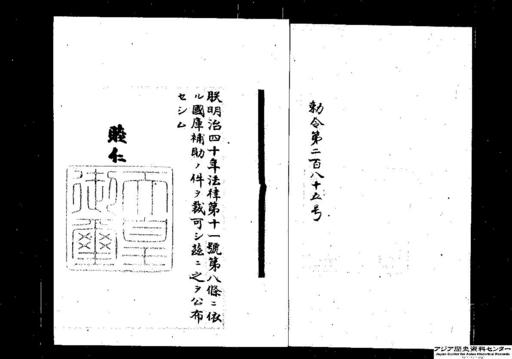 勅令第二百八十五号
朕明治四十年法律第十一號第八條ニ依
ル國庫補助ノ件ヲ裁可シ茲ニ之ヲ公布
セシム
睦仁
天皇
御璽
アジア歴史資料センター
Japan Center for Asian Historical Records